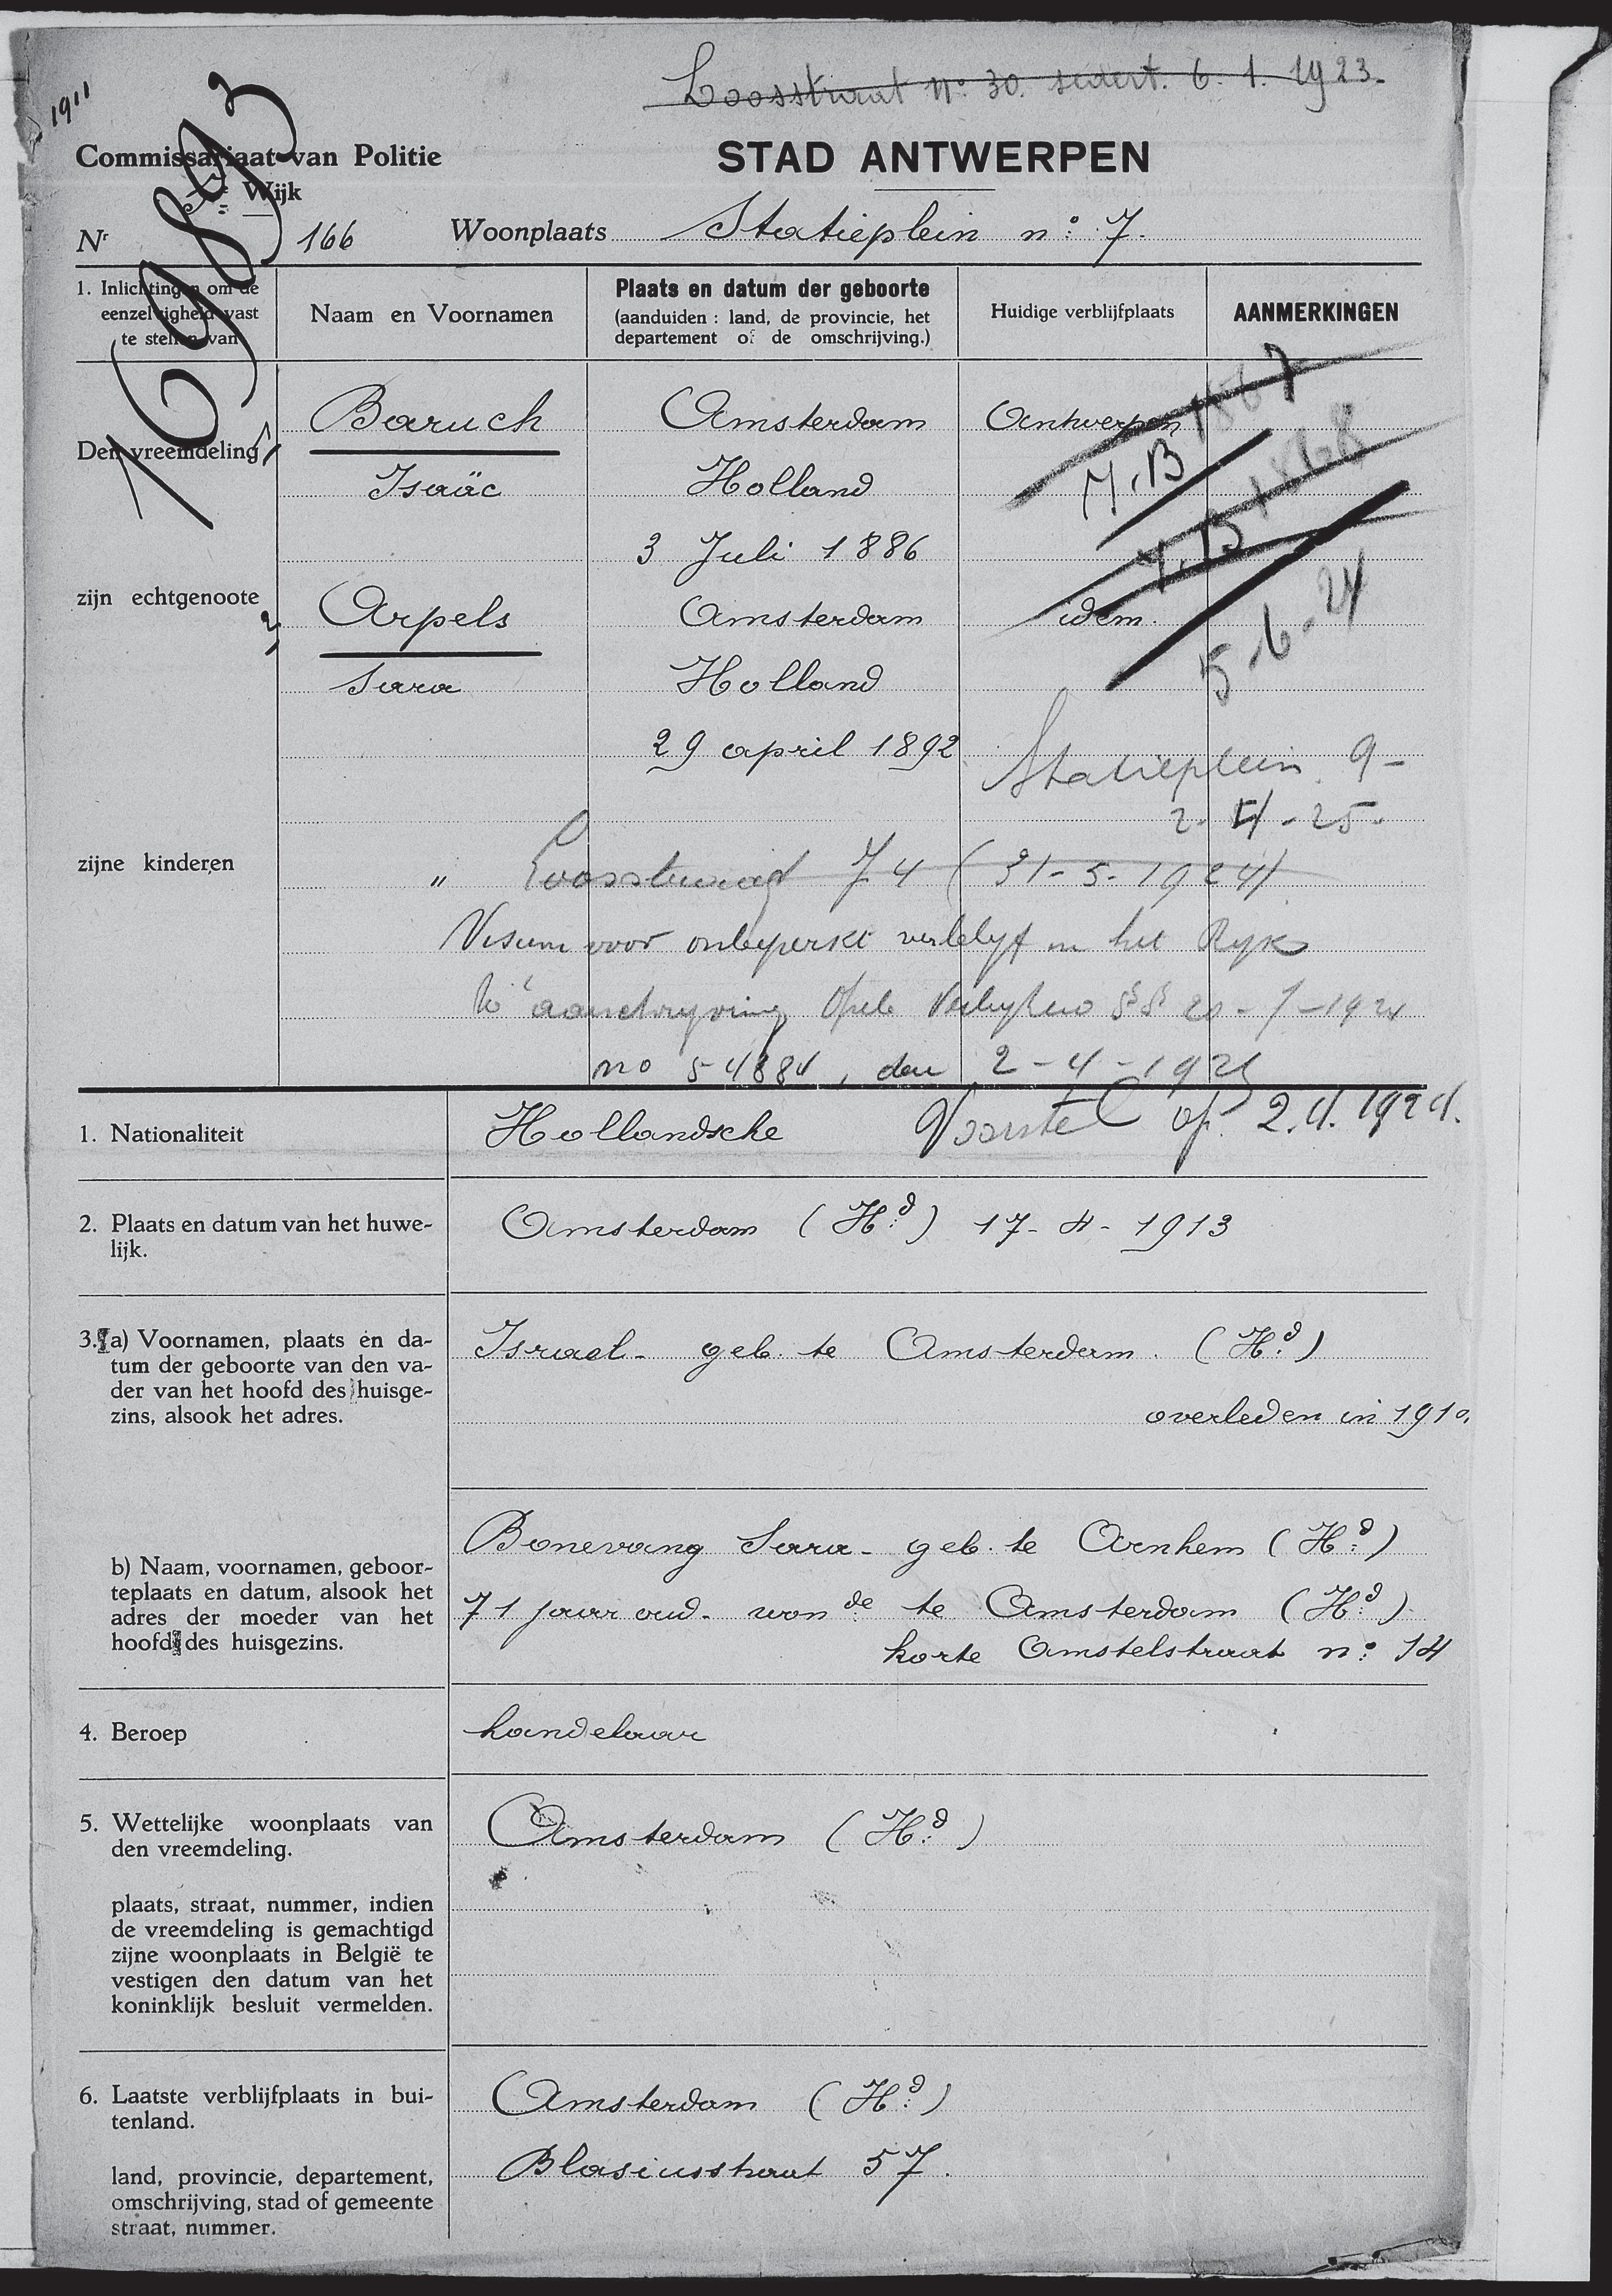 Loosstraat no 30. sedert. 6. 1. 1923.
1911
169893
Commissariaat van Politie
STAD ANTWERPEN
Wijk
Nr 166 Woonplaats Statieplein no: 7.
1. Inlichtingen om de eenzelvigheid vast te stellen van
Naam en Voornamen
Plaats en datum der geboorte
(aanduiden : land, de provincie, het
departement of de omschrijving.)
Huidige verblijfplaats
AANMERKINGEN
Den vreemdeling
1, Baruch Amsterdam Antwerpen
Isaäc Holland
3 Juli 1886
7.B 1867
7.B 1868
5-6-24
zijn echtgenoote
2, Arpels Amsterdam idem.
Sara Holland
29 april 1892
Statieplein 9-
2-4-25-
zijne kinderen
" Loosstraat 74 (31-5-1924)
Visum voor onbeperkt verblijf in het Ryk
aanschryving
no 54884, den 2-4-192
1. Nationaliteit
Hollandsche op 2.4.1924.
2. Plaats en datum van het huwe-
lijk.
Amsterdam (Hd) 17-4-1913
3. a) Voornamen, plaats en da-
tum der geboorte van den va-
der van het hoofd des huisge-
zins, alsook het adres.
Israel- geb. te Amsterdam. (Hd)
overleden in 1910.
b) Naam, voornamen, geboor-
teplaats en datum, alsook het
adres der moeder van het
hoofd des huisgezins.
Bonevang Sara- geb. te Arnhem (Hd)
71 jaar oud- wonde te Amsterdam (Hd)
korte Amstelstraat no: 14
4. Beroep
handelaar
5. Wettelijke woonplaats van
den vreemdeling.
Amsterdam (Hd)
plaats, straat, nummer, indien
de vreemdeling is gemachtigd
zijne woonplaats in België te
vestigen den datum van het
koninklijk besluit vermelden.
6. Laatste verblijfplaats in bui-
tenland.
Amsterdam (Hd)
Blasiusstraat 57.
land, provincie, departement,
omschrijving, stad of gemeente
straat, nummer.